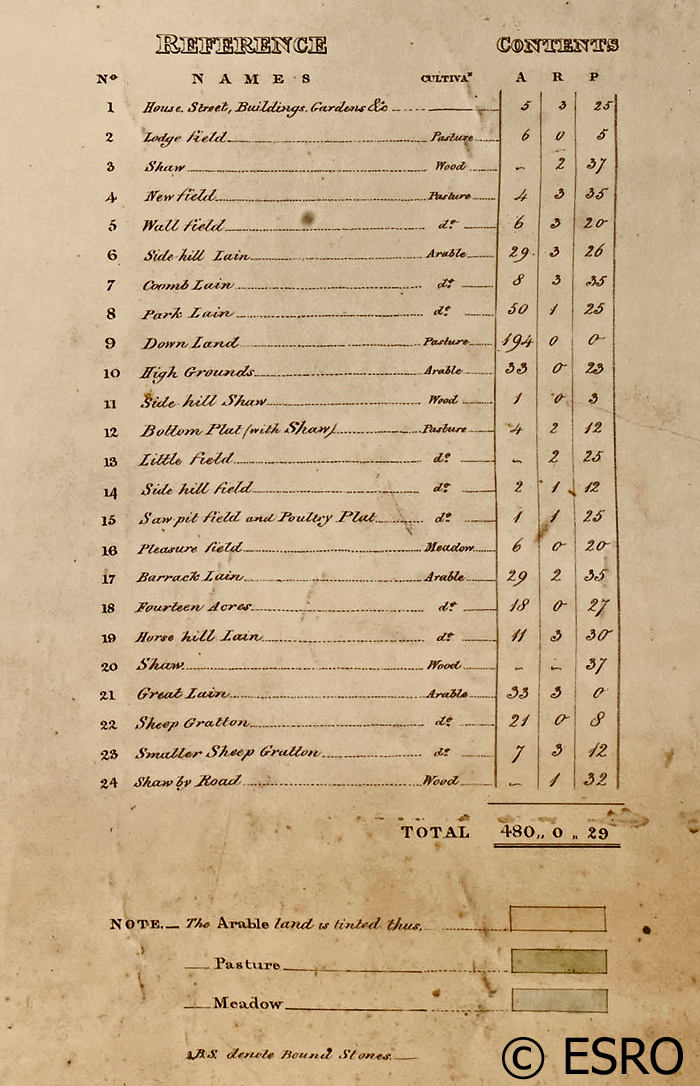 REFERENCE CONTENTS
No. NAMES CULTIVAn. A R P
1 House, Street, Buildings, Gardens &c 5 3 25
2 Lodge field Pasture 6 0 5
3 Shaw Wood - 2 37
4 New field Pasture 4 3 35
5 Wall field do. 6 3 20
6 Side hill Lain Arable 29 3 26
7 Coomb Lain do. 8 3 35
8 Park Lain do. 50 1 25
9 Down Land Pasture 194 0 0
10 High Grounds Arable 33 0 23
11 Side hill Shaw Wood 1 0 3
12 Bottom Plat (with Shaw) Pasture 4 2 12
13 Little field do. - 2 25
14 Side hill field do. 2 1 12
15 Saw pit field and Poultry Plat do. 1 1 25
16 Pleasure field Meadow 6 0 20
17 Barrack Lain Arable 29 2 35
18 Fourteen Acres do. 18 0 27
19 Horse hill Lain do. 11 3 30
20 Shaw Wood - - 37
21 Great Lain Arable 33 3 0
22 Sheep Gratton do. 21 0 8
23 Smaller Sheep Gratton do. 7 3 12
24 Shaw by Road Wood - 1 32
TOTAL 480 ,, 0 ,, 29
NOTE.— The Arable land is tinted thus.
— Pasture
— Meadow
B.S. denote Bound Stones.
© ESRO